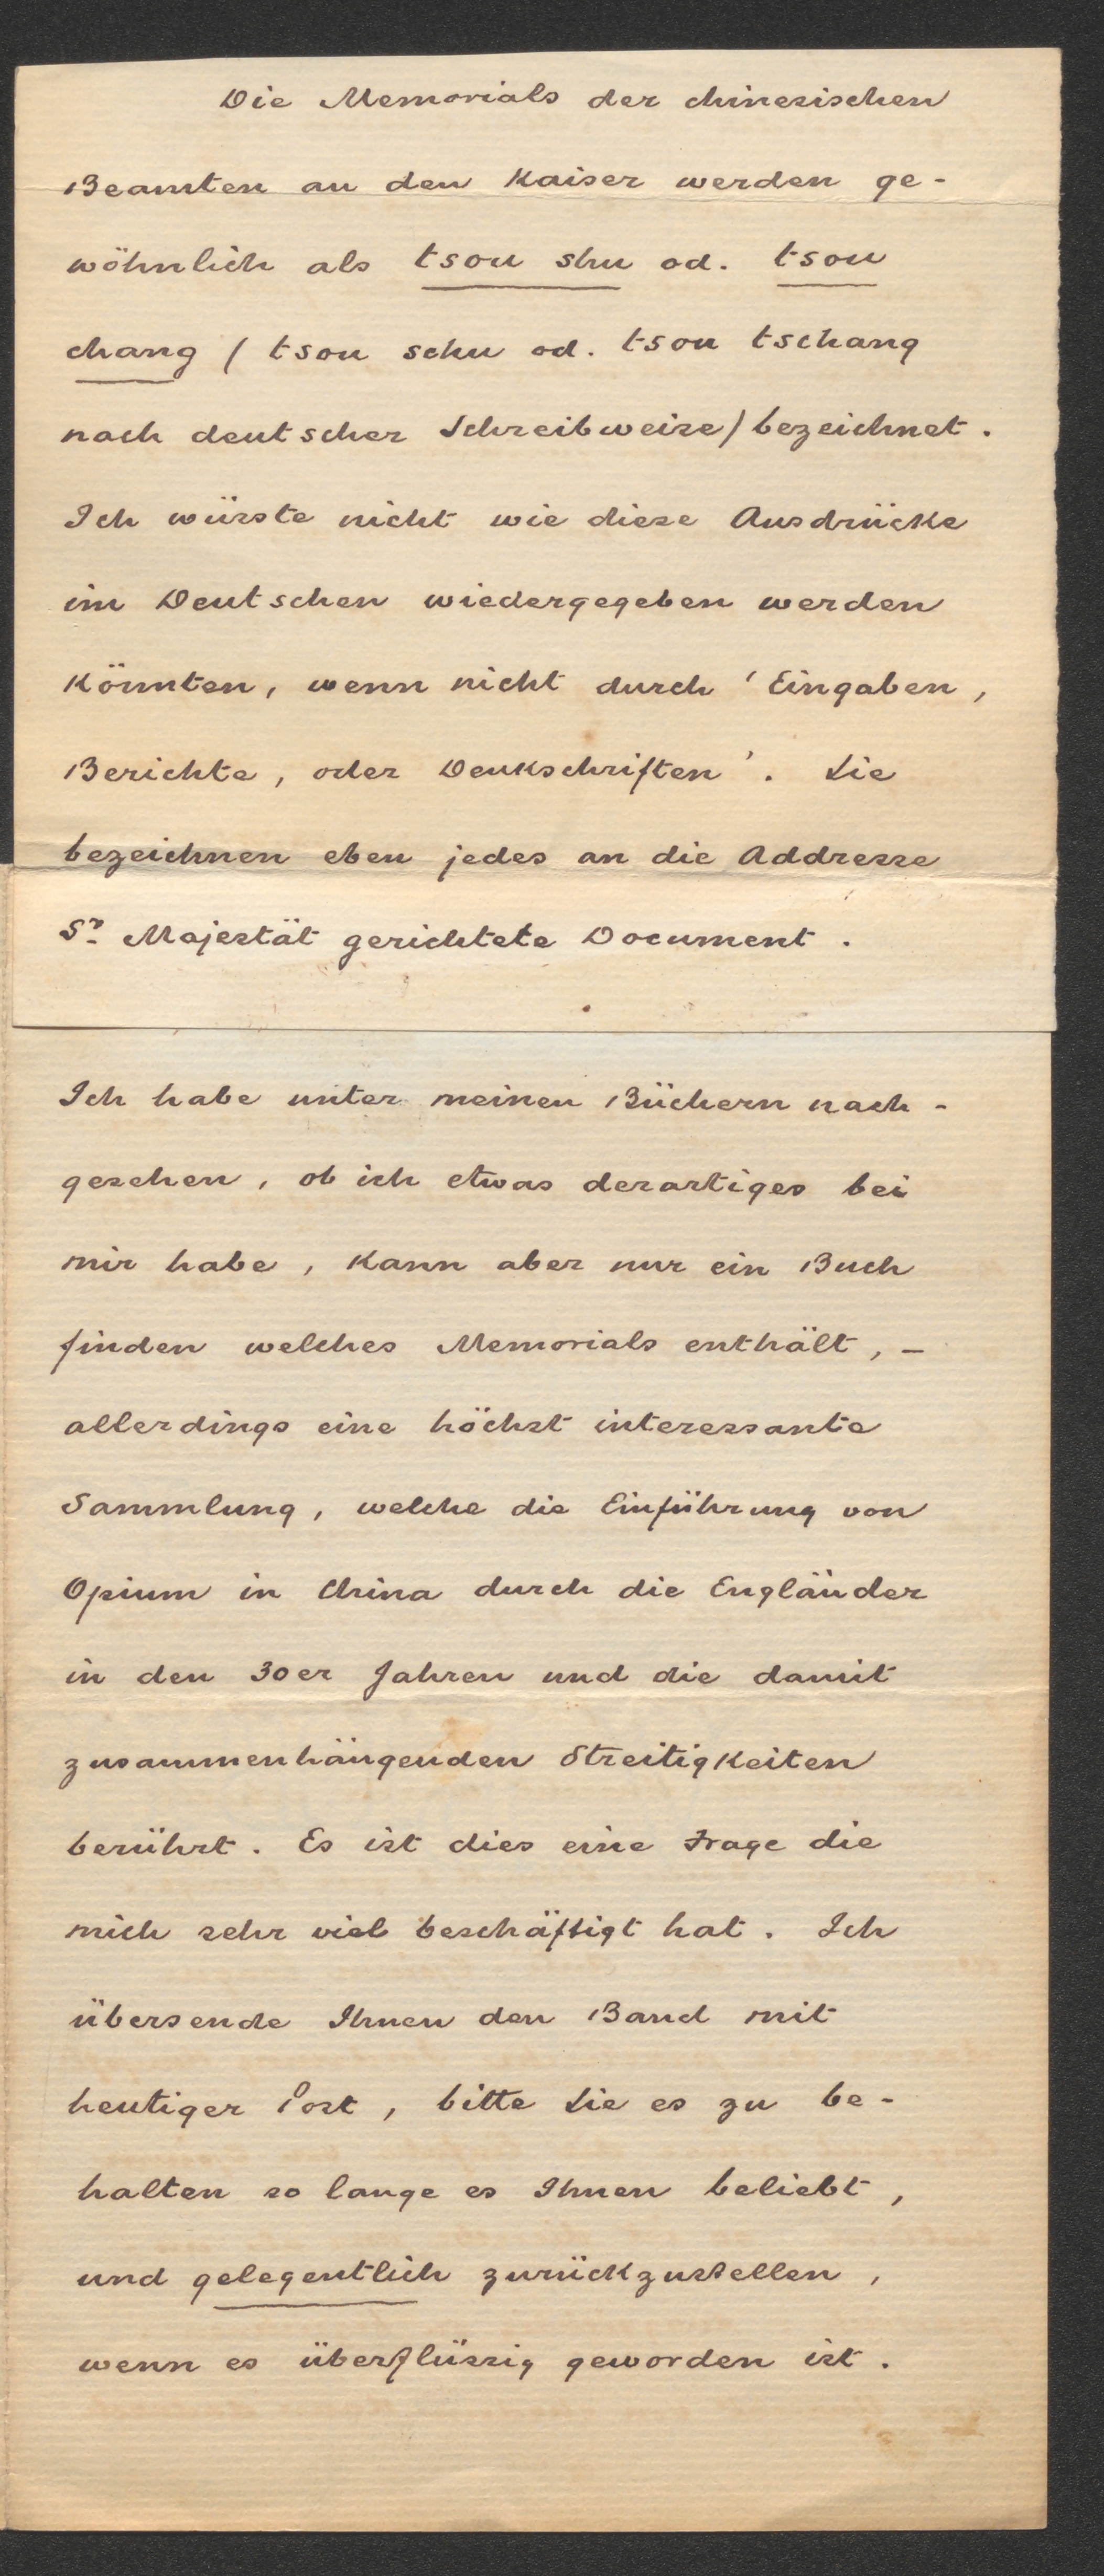 Die Memorials der chinesischen
Beamten an den Kaiser werden ge-
wöhnlich als tsou shu od. tsou
chang / tsou schu od. tsou tschang
nach deutscher Schreibweise / bezeichnet.
Ich wüsste nicht wie diese Ausdrücke
im Deutschen wiedergegeben werden
könnten, wenn nicht durch 'Eingaben,
Berichte, oder Denkschriften'. Sie
bezeichnen eben jedes an die Addresse
Sr. Majestät gerichtete Document.
Ich habe unter meinen Büchern nach-
gesehen, ob ich etwas derartiges bei
mir habe, kann aber nur ein Buch
finden welches Memorials enthält, -
allerdings eine höchst interessante
Sammlung, welche die Einführung von
Opium in China durch die Engländer
in den 30er Jahren und die damit
zusammenhängenden Streitigkeiten
berührt. Es ist dies eine Frage die
mich sehr viel beschäftigt hat. Ich
übersende Ihnen den Band mit
heutiger Post, bitte Sie es zu be-
halten so lange es Ihnen beliebt,
und gelegentlich zurückzustellen,
wenn es überflüssig geworden ist.